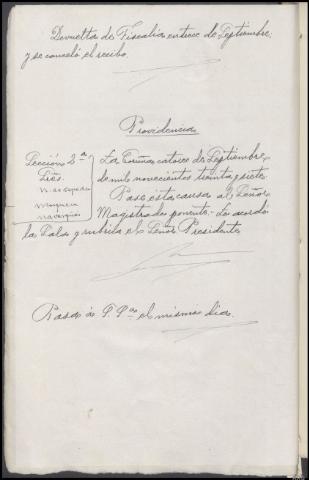 Devuelta de Fiscalia en trece de Septiembre,
y se canceló el recibo.
Providencia
Sección 2ª
Sres.
La Coruña catorce de Septiembre,
de mil novecientos treinta y siete.
Pase esta causa al Señor
Magistrado ponente. Lo acordó
la Sala y rubrica el Señor Presidente
Pasa á P. el mismo dia.